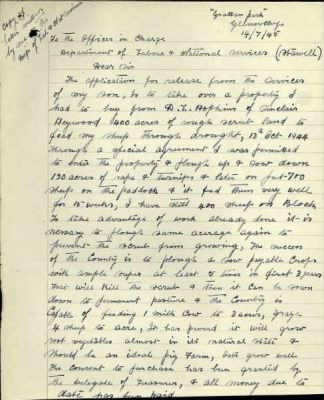 "Grattan Park"
14/7/45
To the Officer in Charge
Department of Labour & National Services (Stawell)
Dear Sir
The application for release from the Services
of my son, is to take over a property I
had to buy from D. L. Hopkins of Sinclair
Heywood 400 acres of rough scrub land to
feed my sheep through drought, 13th Oct. 1944
through a special agreement I was permitted
to enter the property & plough up & sow down
130 acres of rape & turnips & later on put 700
sheep on the paddock & it fed them very well
for 15 weeks, I have still 400 sheep on Block,
To take advantage of work already done it is
nessary to plough same acreage again to
prevent the scrub from growing, The success
of the County is to plough & sow payable Crops
with ample super at least 5 times in first 3 years
That will kill the scrub & then it can be sown
down to permanent pasture & the County is
Capable of feeding 1 milk Cow to 3 acres, graze
4 sheep to acre, It has proved it will grow
root vegetables almost in its natural state &
should be an ideal pig Farm, oats grow well
The Consent to purchase has been granted by
the Delegate of Treasurer, & all money due to
date has been paid